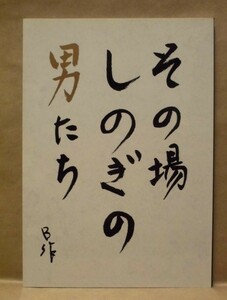 その場
しのぎの
男たち
B作